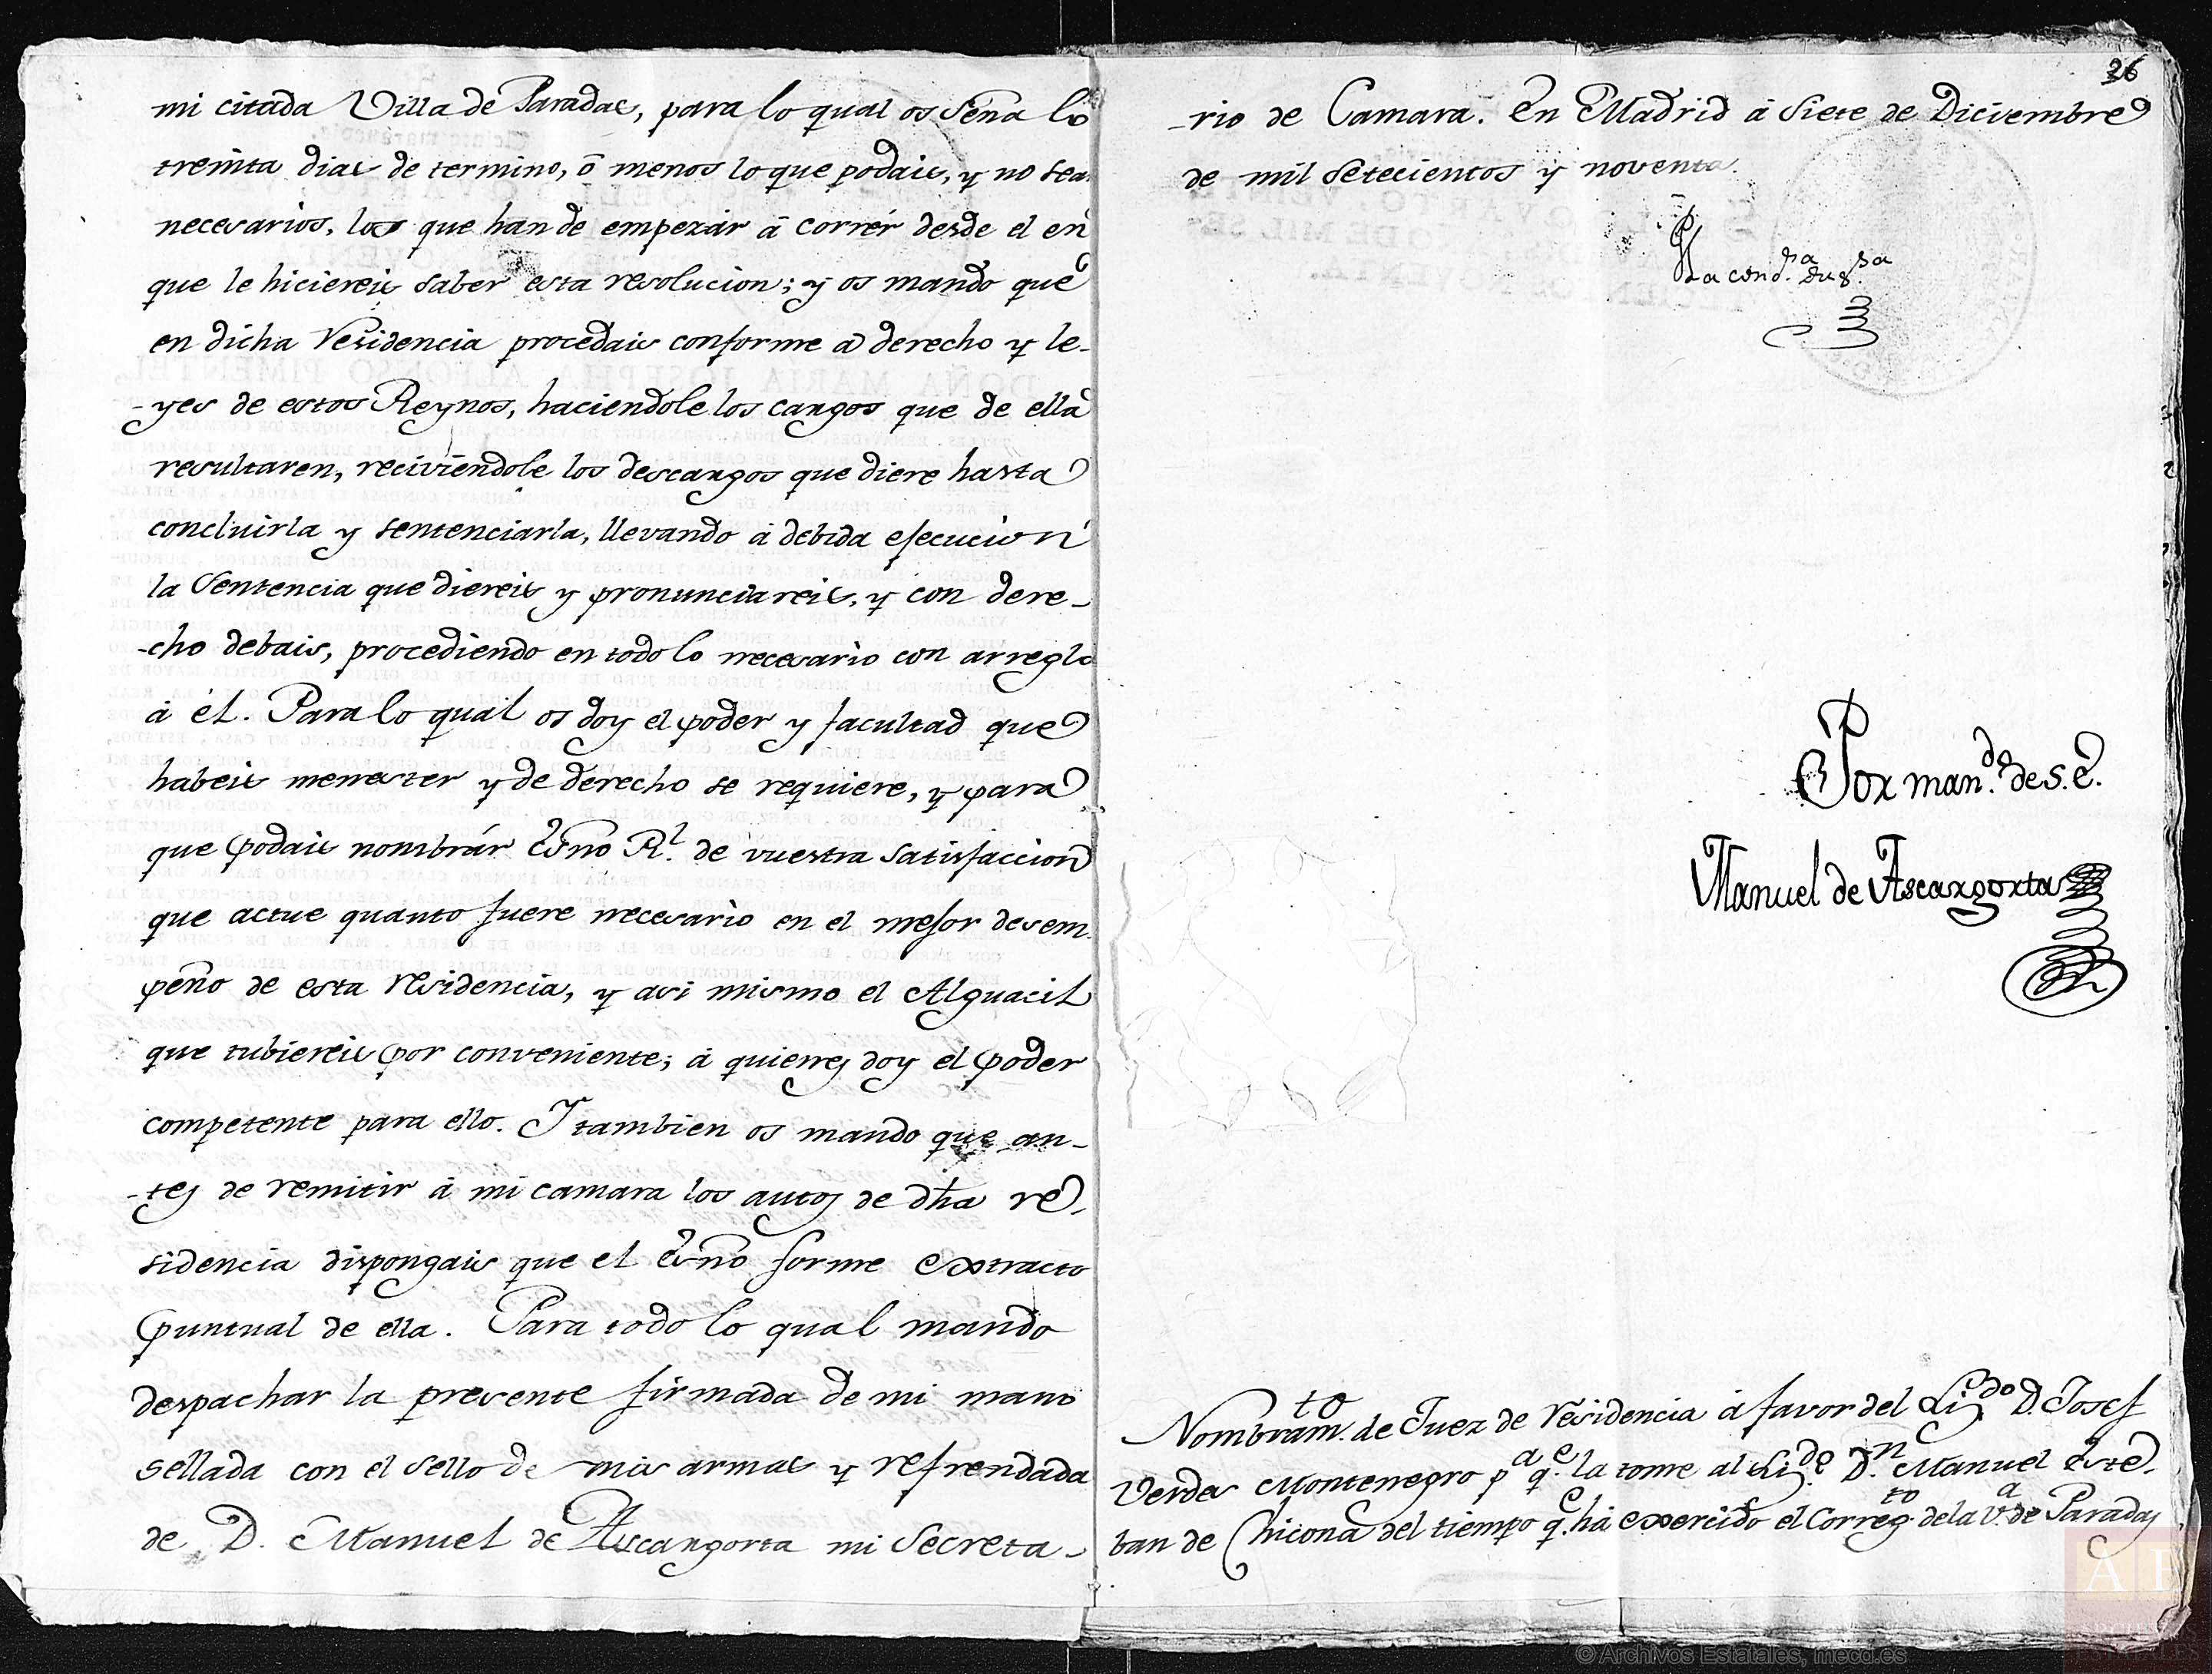 mi citada Villa de Paradas, para lo qual os seña lo
treinta dias de termino, ó menos lo que podais, y no sean
necesarios, los que han de empezár á corrér desde el en
que le hiciereis saber esta resolucion; y os mando que
en dicha Residencia procedais conforme a derecho y le-
-yes de estos Reynos, haciendole los cargos que de ella
resultaren, reciviendole los descargos que diere hasta
concluirla y sentenciarla, llevando á debida ejecucion
la Sentencia que diereis y pronunciareis, y con dere-
-cho debais, procediendo en todo lo necesario con arreglo
á él. Para lo qual os doy el poder y facultad que
habeis menester y de derecho se requiere, y para
que podais nombrár Esno Rl. de vuestra satisfaccion
que actue quanto fuere necesario en el mejor desem-
peño de esta residencia, y asi mismo el Alguacil
que tubiereis por conveniente; á quienes doy el poder
competente para ello. Y tambien os mando que an-
-tes de remitir á mi camara los autos de dha re-
sidencia dispongais que el Esno forme extracto
puntual de ella. Para todo lo qual mando
despachar la presente firmada de mi mano
sellada con el sello de mis armas y refrendada
de D. Manuel de Ascargorta mi Secreta-
26
-rio de Camara. En Madrid á Siete de Diciembre
de mil setecientos y noventa.
La cond.sa duq.sa
Por man.do de S.E.
Manuel de Ascargorta
Nombram.to de Juez de Residencia á favor del Li.do D. Josef
Verdes Montenegro p.a q.e la tome al Li.do D.n Manuel Este-
ban de Chicona del tiempo q.e há exercido el Correg.to de la V.a de Paradas
© Archivos Estatales, mecd.es